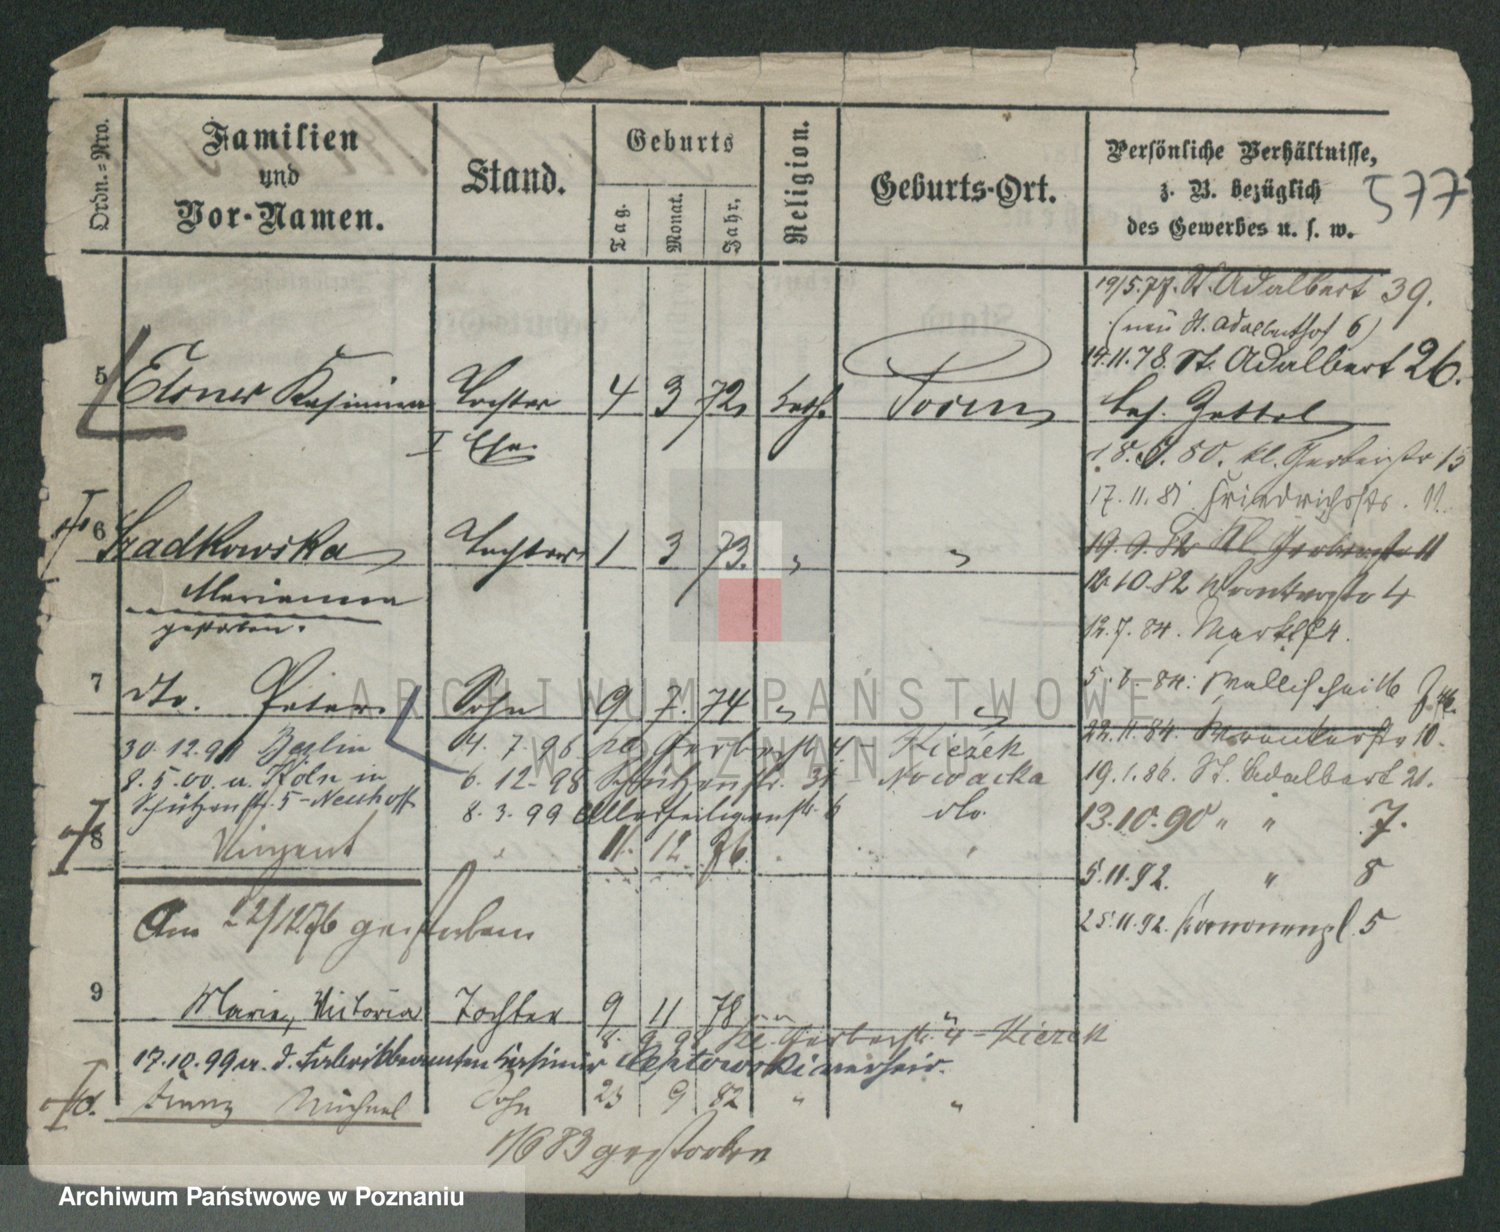 Ordn.=Nro.
Familien
und
Vor-Namen.
Stand.
Geburts
Tag.
Monat.
Jahr.
Religion.
Geburts-Ort.
Persönliche Verhältnisse,
z. B. bezüglich
des Gewerbes u. s. w.
577
19/5.77. St. Adalbert 39.
(neu St. Adalberthof 6)
14.11.78. St. Adalbert 26.
5 Elsner Kasimira Tochter 4 3 72 kath. Posen bes. Zettel
I Ehe.
18.9.80. kl. Gerberstr 15
17.11.81 Friedrichsstr. 11.
6 Szadkowska Tochter 1 3 73. " "
19.9.82 kl. Gerberstr 11
10.82 Wronkerstr 4
Marianna
gestorben.
12.7.84. Markt 84.
7 dto. Peter Sohn 9 7. 74 " "
5. 84. Wallischei
22.11.84. Wronkerstr 10.
30.12.99 Berlin
4.7.96 kl. Gerberstr. 4 - Kiezek
8.5.00. a. Köln in
6.12.98 Schützenstr. 31 Nowacka
19.1.86. St. Adalbert 21.
Schützenstr. 5 - Neuhoff
8.3.99 Allerheiligenstr. 6 dto.
13.10.90 " " 7.
8 Vinzent " 11. 12 76. " "
5.11.92. " 8
Am 22/12 76 gestorben
25.11.92. Kanonenpl. 5
9 Marie, Victoria Tochter 9 11 78 " "
8. 9 98 kl. Gerberstr. 4 - Kiezek
17.10.99 a. d. Fabrikbeamten Kasimir verheir.
Franz Michael Sohn 23 9 82 " "
1/6 83 gestorben
ARCHIWUM PAŃSTWOWE
W POZNANIU
Archiwum Państwowe w Poznaniu